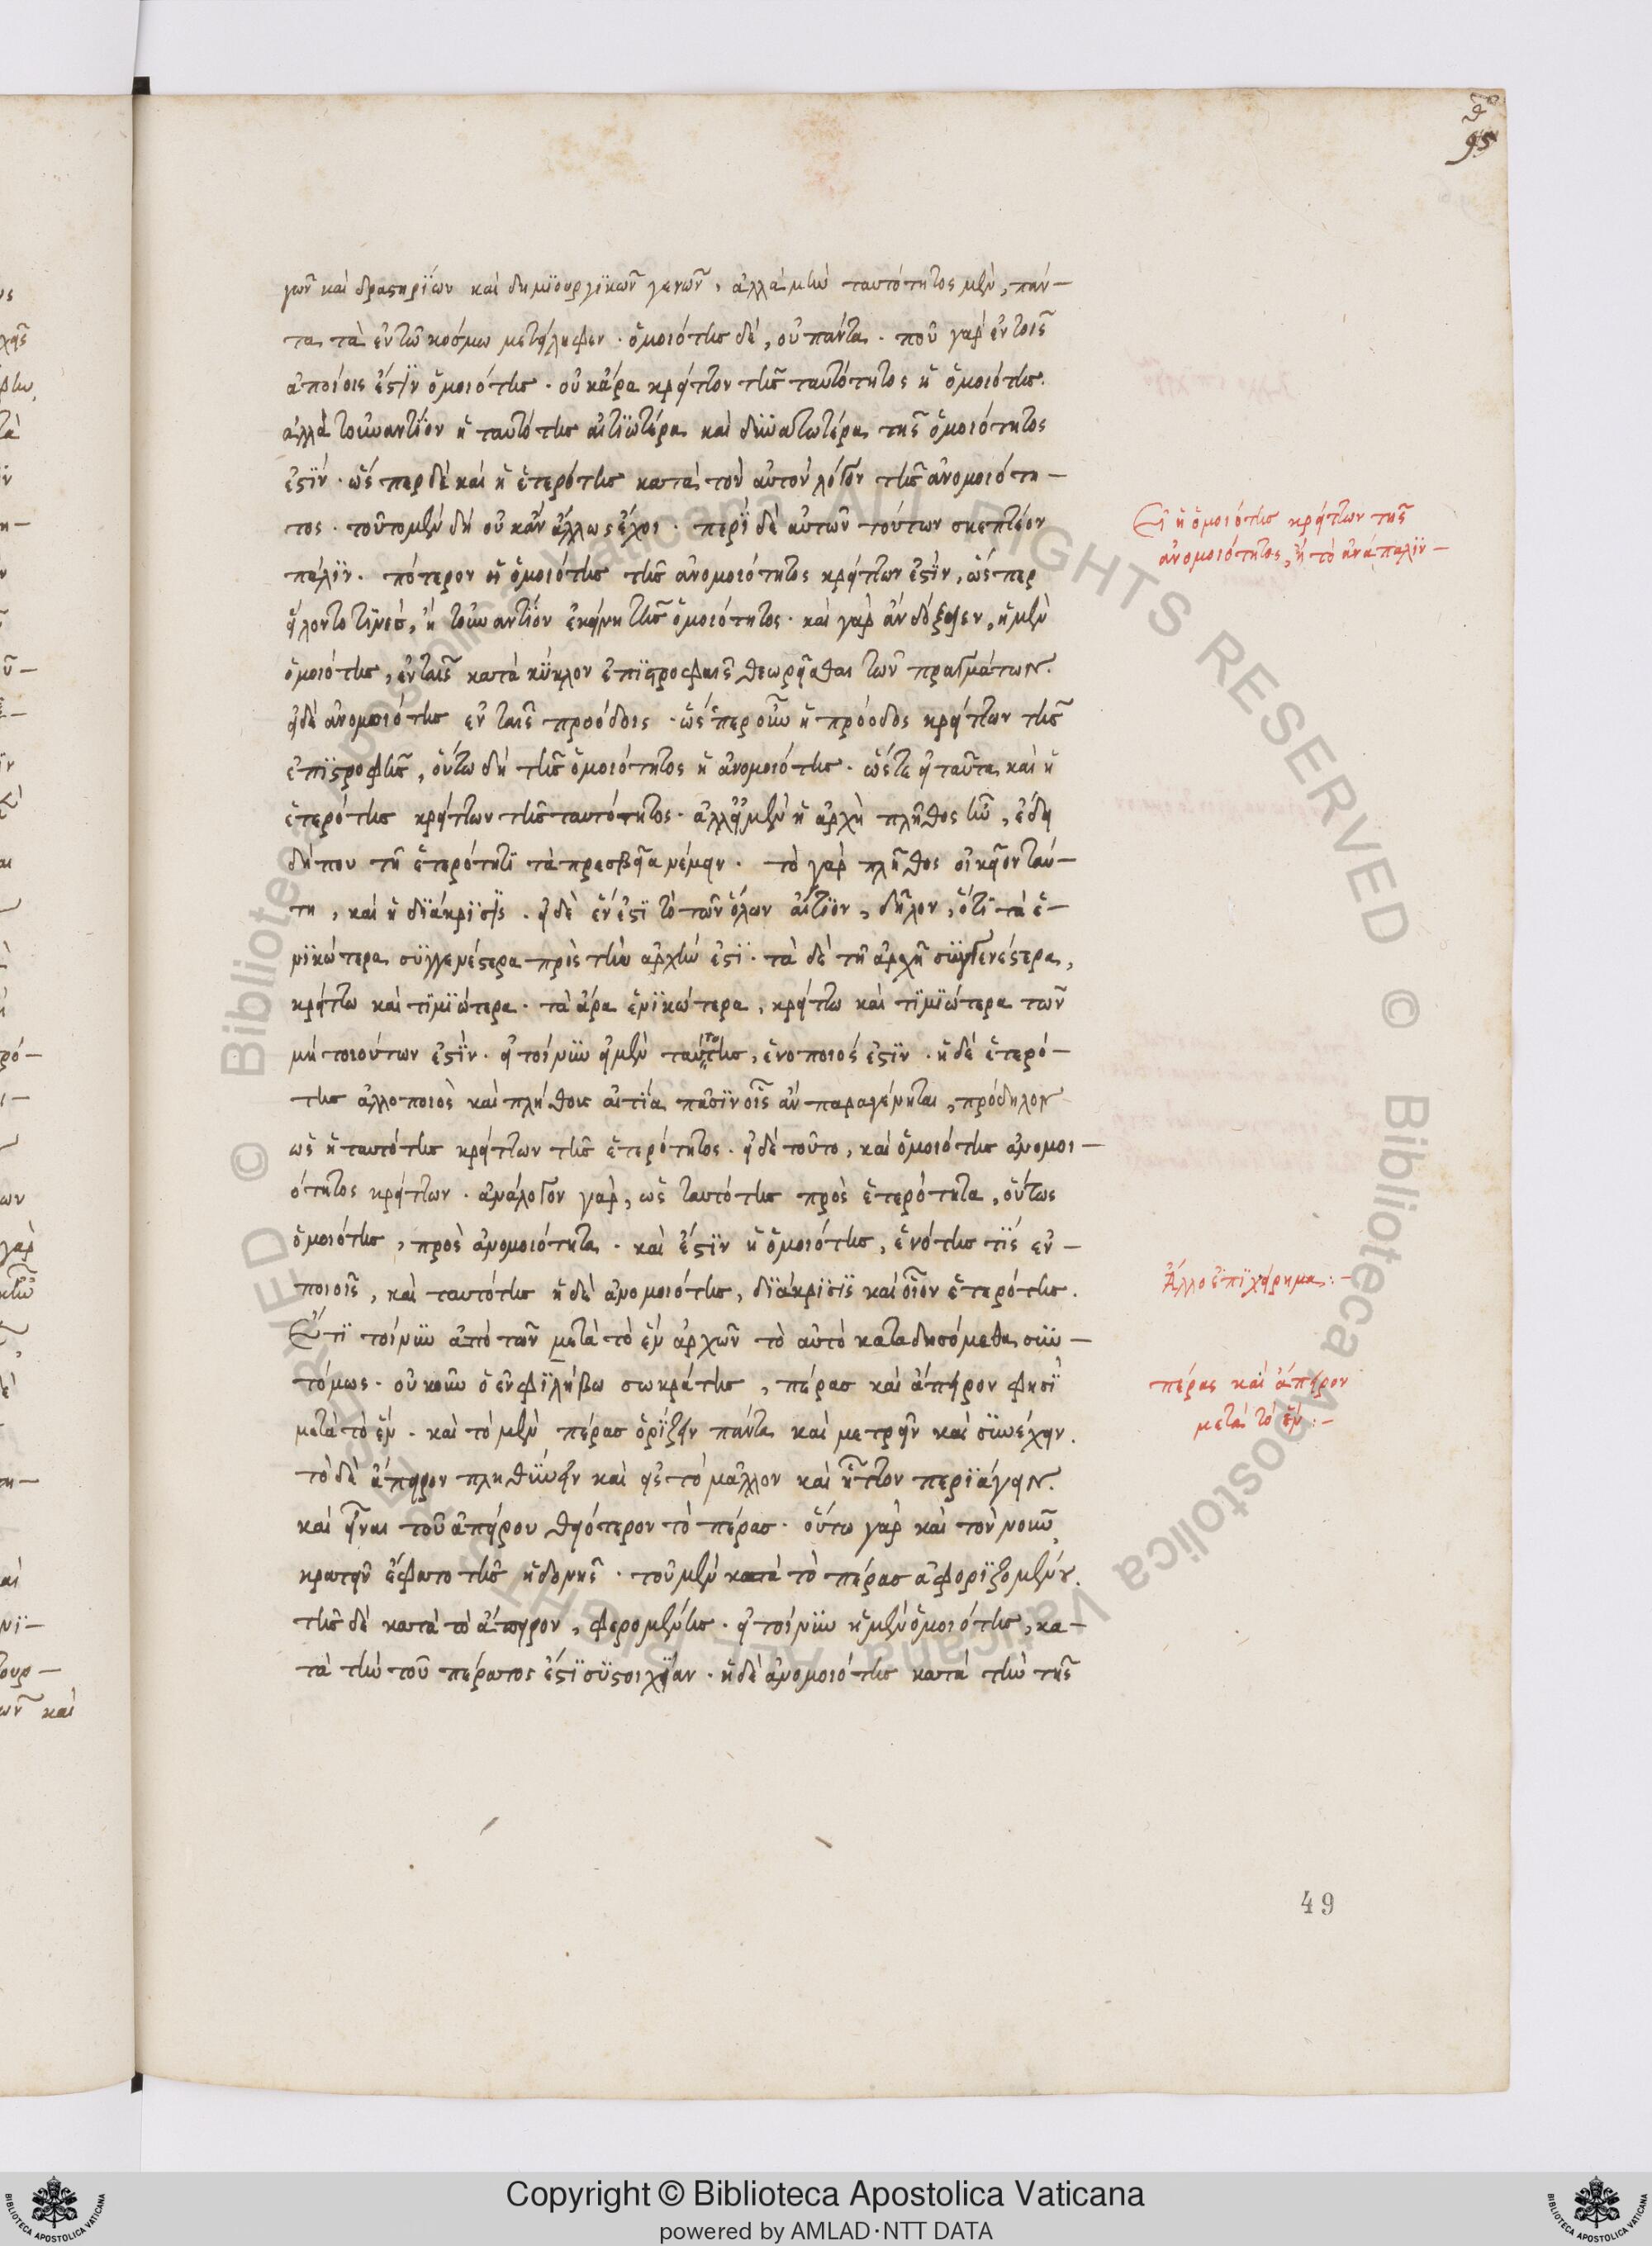 95
γων καὶ δραστηρίων καὶ δημϊουργϊκῶν γενῶν, ἀλλὰ μὴν ταυτότητος μὲν, πάν-
τα τὰ ἐν τῶ κόσμω μετείληφεν. ὁμοιότης δὲ, οὐ πάντα. ποῦ γὰρ ἐν τοῖς
ἀποίοις ἐστὶν ὁμοιότης. οὐκ ἄρα κρεῖττον τῆς ταυτότητος ἡ ὁμοιότης.
ἀλλὰ τοὐναντίον ἡ ταυτότης αἰτιωτέρα καὶ δυνατωτέρα τῆς ὁμοιότητος
ἐστίν. ὥσπερ δὲ καὶ ἡ ἑτερότης κατὰ τὸν αὐτὸν λόγον τῆς ἀνομοιότη-
τος. τοῦτο μὲν δὴ οὐκ ἂν ἄλλως ἔχοι. περὶ δὲ αὐτῶν τούτων σκεπτέον
πάλιν. πότερον ἡ ὁμοιότης τῆς ἀνομοιότητος κρείττων ἐστὶν, ὥσπερ
εἵλοντο τινὲς, ἢ τοὐναντίον ἐκείνη τῆς ὁμοιότητος. καὶ γὰρ ἂν δόξειεν, ἡ μὲν
ὁμοιότης, ἐν ταῖς κατὰ κύκλον ἐπιστροφαῖς θεωρεῖσθαι τῶν πραγμάτων.
ἡ δὲ ἀνομοιότης ἐν ταῖς προόδοις. ὥσπερ οὖν ἡ πρόοδος κρείττων τῆς
ἐπιστροφῆς, οὕτω δὴ τῆς ὁμοιότητος ἡ ἀνομοιότης. ὥστε εἰ ταῦτα καὶ ἡ
ἑτερότης κρείττων τῆς ταυτότητος. ἀλλ' εἰ μὲν ἡ ἀρχὴ πλῆθος ἦν, ἔδει
δήπου τῆ ἑτερότητι τὰ πρεσβεῖα νέμειν. τὸ γὰρ πλῆθος οἰκεῖον ταύ-
τη, καὶ ἡ διάκρισις. εἰ δὲ ἕν ἐστι τὸ τῶν ὅλων αἴτιον, δῆλον, ὅτι τὰ ἑ-
νικώτερα συγγενέστερα πρὸς τὴν ἀρχὴν ἐστί. τὰ δὲ τῆ ἀρχῆ συγγενέστερα,
κρείττω καὶ τιμιώτερα. τὰ ἄρα ἑνικώτερα, κρείττω καὶ τιμιώτερα τῶν
μὴ τοιούτων ἐστίν. εἰ τοίνυν εἰ μὲν ταυτότης, ἑνοποιός ἐστιν. ἡ δὲ ἑτερό-
της ἀλλοποιὸς καὶ πλήθους αἰτία πᾶσιν οἷς ἂν παραγένηται, πρόδηλον
ὡς ἡ ταυτότης κρείττων τῆς ἑτερότητος. εἰ δὲ τοῦτο, καὶ ὁμοιότης ἀνομοι-
ότητος κρείττων. ἀνάλογον γὰρ, ὡς ταυτότης πρὸς ἑτερότητα, οὕτως
ὁμοιότης, πρὸς ἀνομοιότητα. καὶ ἔστιν ἡ ὁμοιότης, ἑνότης τίς ἐν
ποιοῖς, καὶ ταυτότης ἡ δὲ ἀνομοιότης, διάκρισις καὶ οἷον ἑτερότης.
Ἔτι τοίνυν ἀπὸ τῶν μετὰ τὸ ἓν ἀρχῶν τὸ αὐτὸ καταδησόμεθα συν-
τόμως. οὐκοῦν ὁ ἐν φιλήβω σωκράτης, πέρας καὶ ἄπειρον φησὶ
μετὰ τὸ ἕν. καὶ τὸ μὲν πέρας ὁρίζειν πάντα καὶ μετρεῖν καὶ συνέχειν.
τὸ δὲ ἄπειρον πληθύνειν καὶ εἰς τὸ μᾶλλον καὶ ἧττον περιάγειν.
καὶ εἶναι τοῦ ἀπείρου θειότερον τὸ πέρας. οὕτω γὰρ καὶ τὸν νοῦν
κρατεῖν ἔφατο τῆς ἡδονῆς. τοῦ μὲν κατὰ τὸ πέρας ἀφοριζομένου.
τῆς δὲ κατὰ τὸ ἄπειρον, φερομένης. εἰ τοίνυν ἡ μὲν ὁμοιότης, κα-
τὰ τὴν τοῦ πέρατος ἐστὶ συστοιχείαν. ἡ δὲ ἀνομοιότης κατὰ τὴν τῆς
Εἰ ἡ ὁμοιότης κρείττων τῆς
ἀνομοιότητος, ἢ τὸ ἀνάπαλιν -
Ἄλλο ἐπιχείρημα:-
πέρας καὶ ἄπειρον
μετὰ τὸ ἕν:-
49
© Biblioteca Apostolica Vaticana ALL RIGHTS RESERVED
Copyright © Biblioteca Apostolica Vaticana
powered by AMLAD·NTT DATA